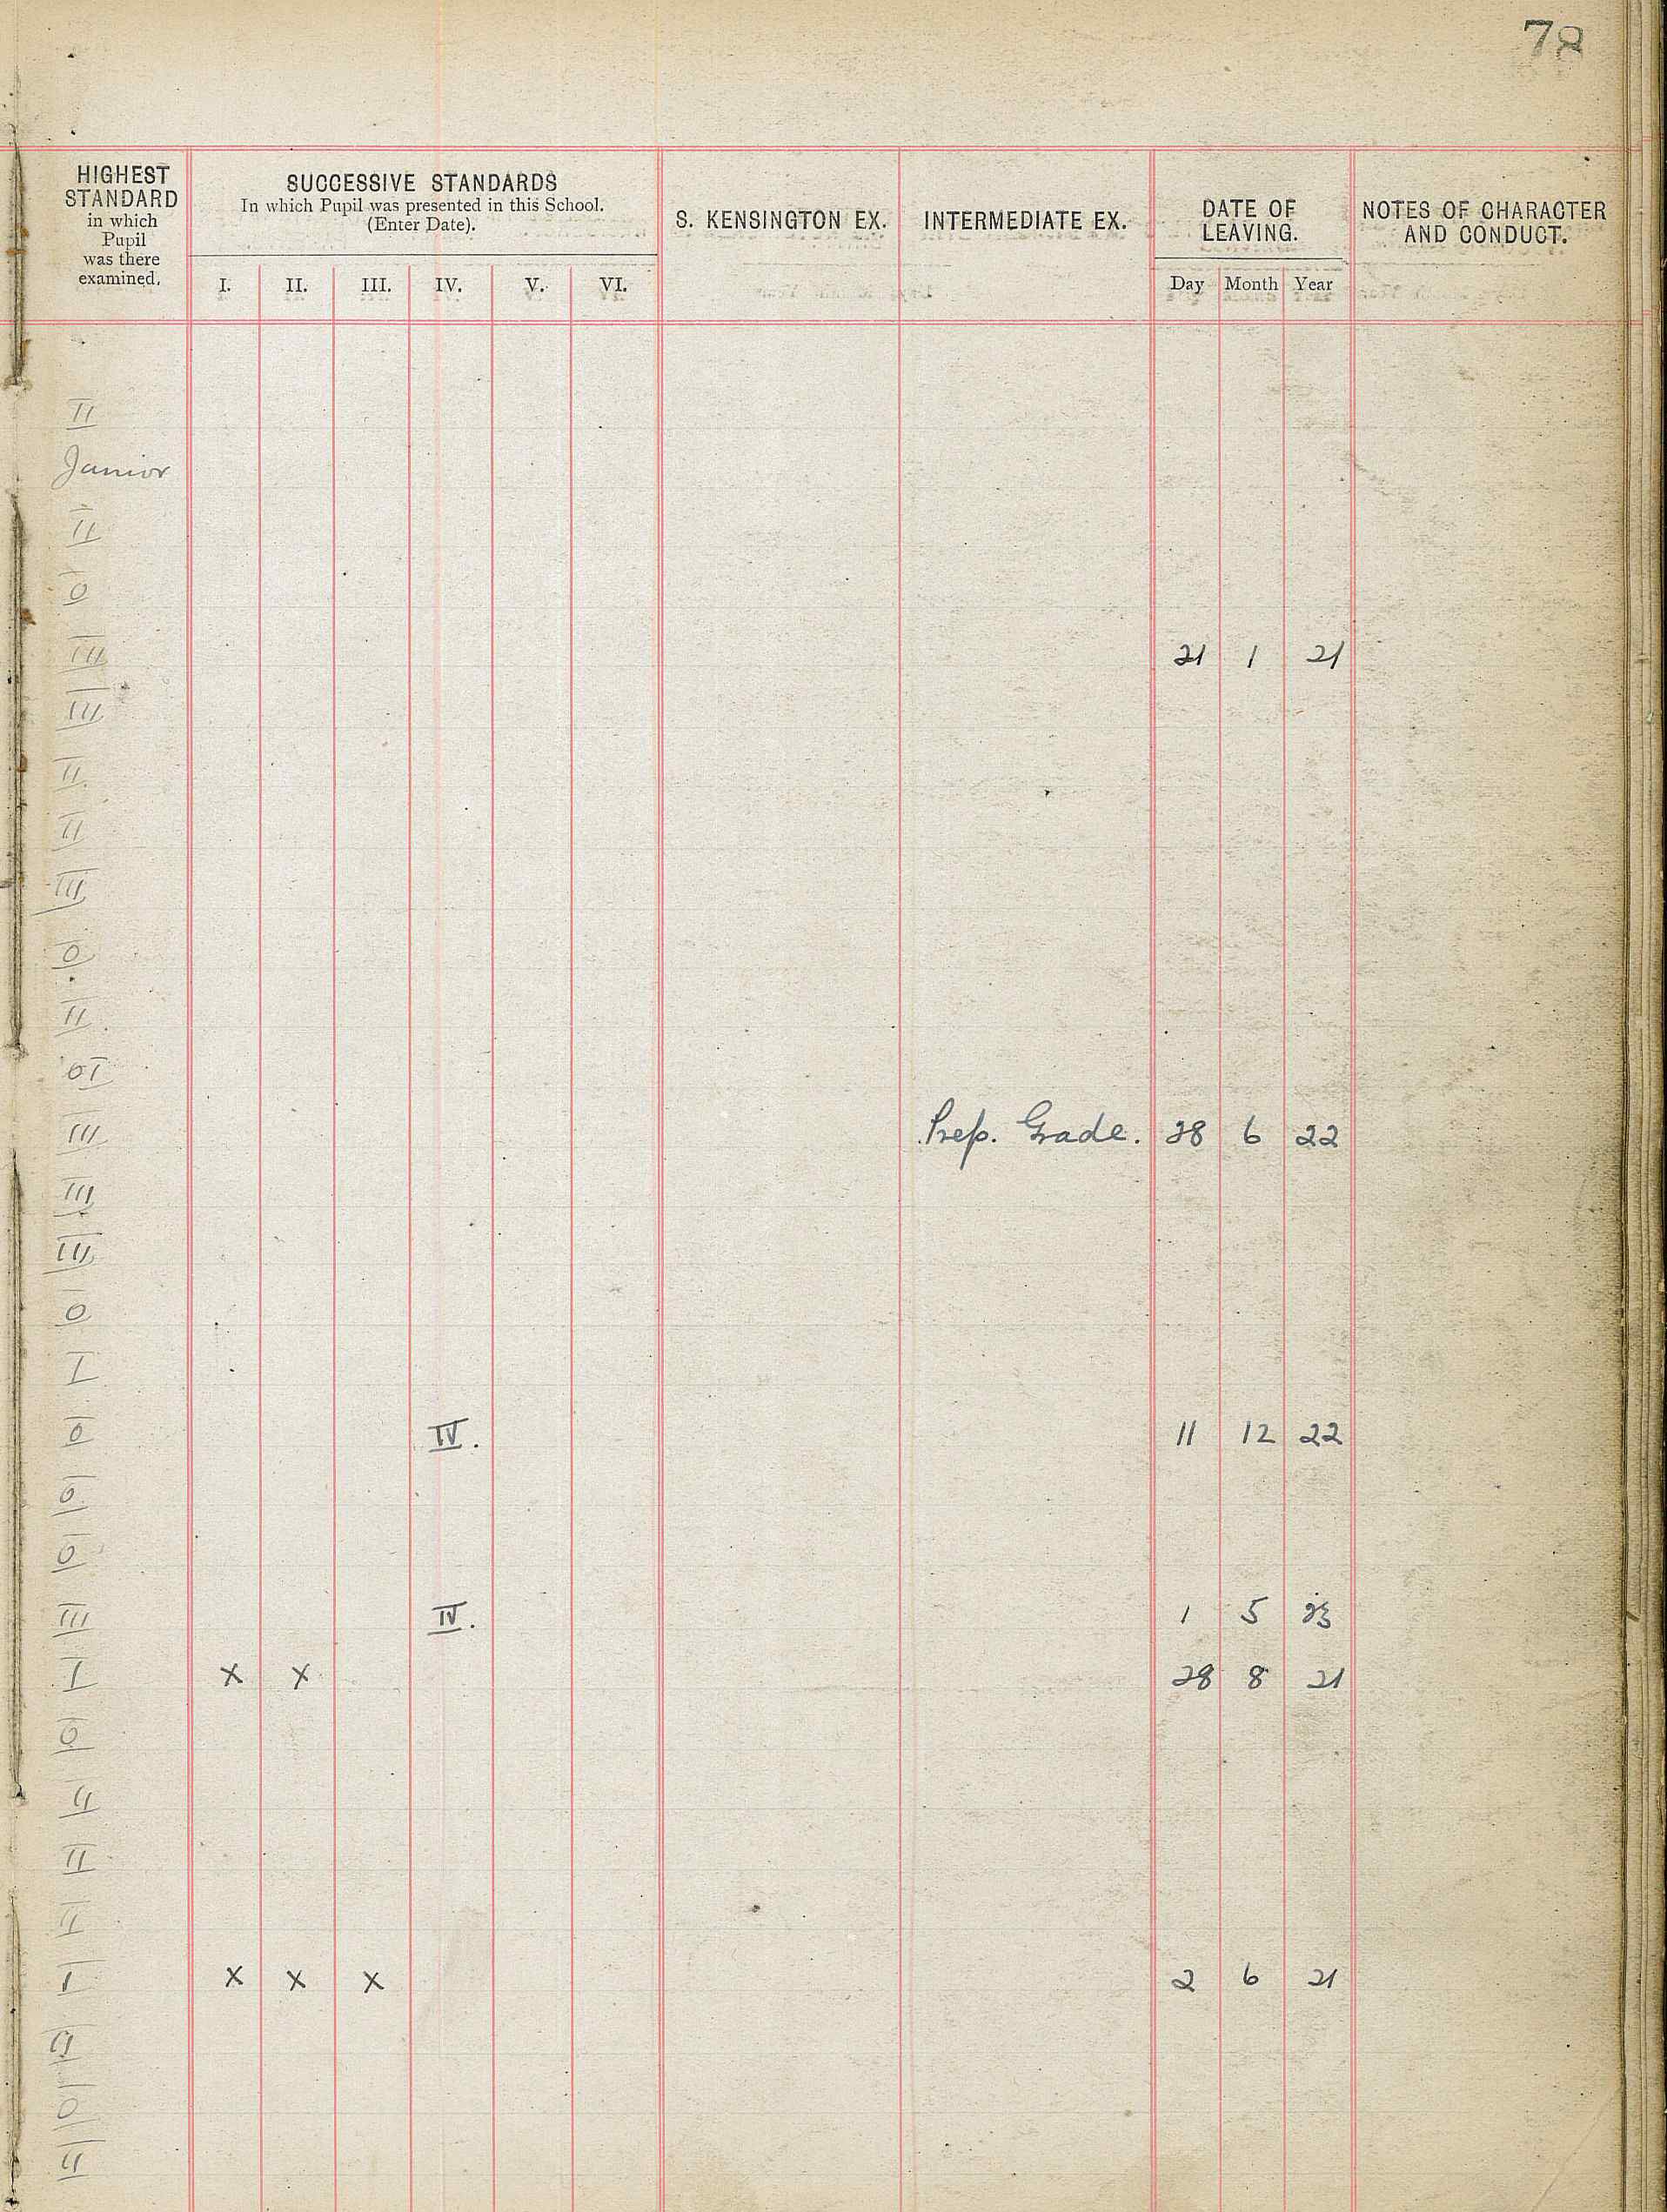 78
HIGHEST STANDARD in which Pupil was there examined.
SUCCESSIVE STANDARDS
In which Pupil was presented in this School.
(Enter Date).
I. II. III. IV. V. VI.
S. KENSINGTON EX.
INTERMEDIATE EX.
DATE OF LEAVING.
Day Month Year
NOTES OF CHARACTER AND CONDUCT.
II
Junior
II
0
III 21 1 21
III
II
II
III
0
II
0I
III Prep. Grade. 28 6 22
III
III
0
I
0 IV. 11 12 22
0
0
III IV. 1 5 23
I x x 28 8 21
0
II
II
II
I x x x 2 6 21
0
II